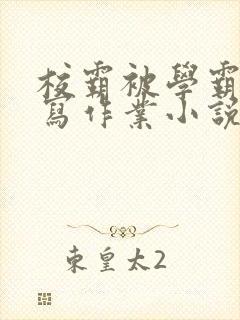 校霸被學霸
寫作業小說
東皇太2